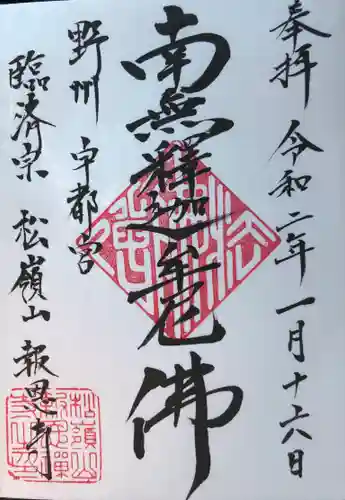 奉拝 令和二年一月十六日
南無釋迦牟尼佛
野州 宇都宮
臨済宗 松嶺山 報恩寺